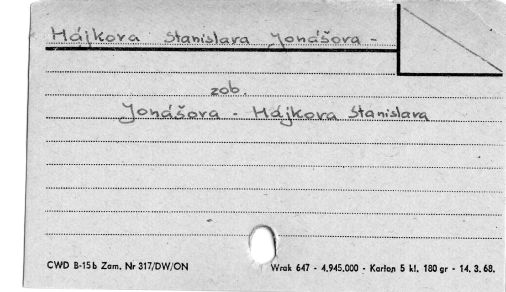 Hájkova Stanislava Jonášova -
zob.
Jonášova - Hájkova Stanislava
CWD B-15b Zam. Nr 317/DW/ON
Wrak 647 - 4.945.000 - Karton 5 kl. 180 gr - 14. 3. 68.